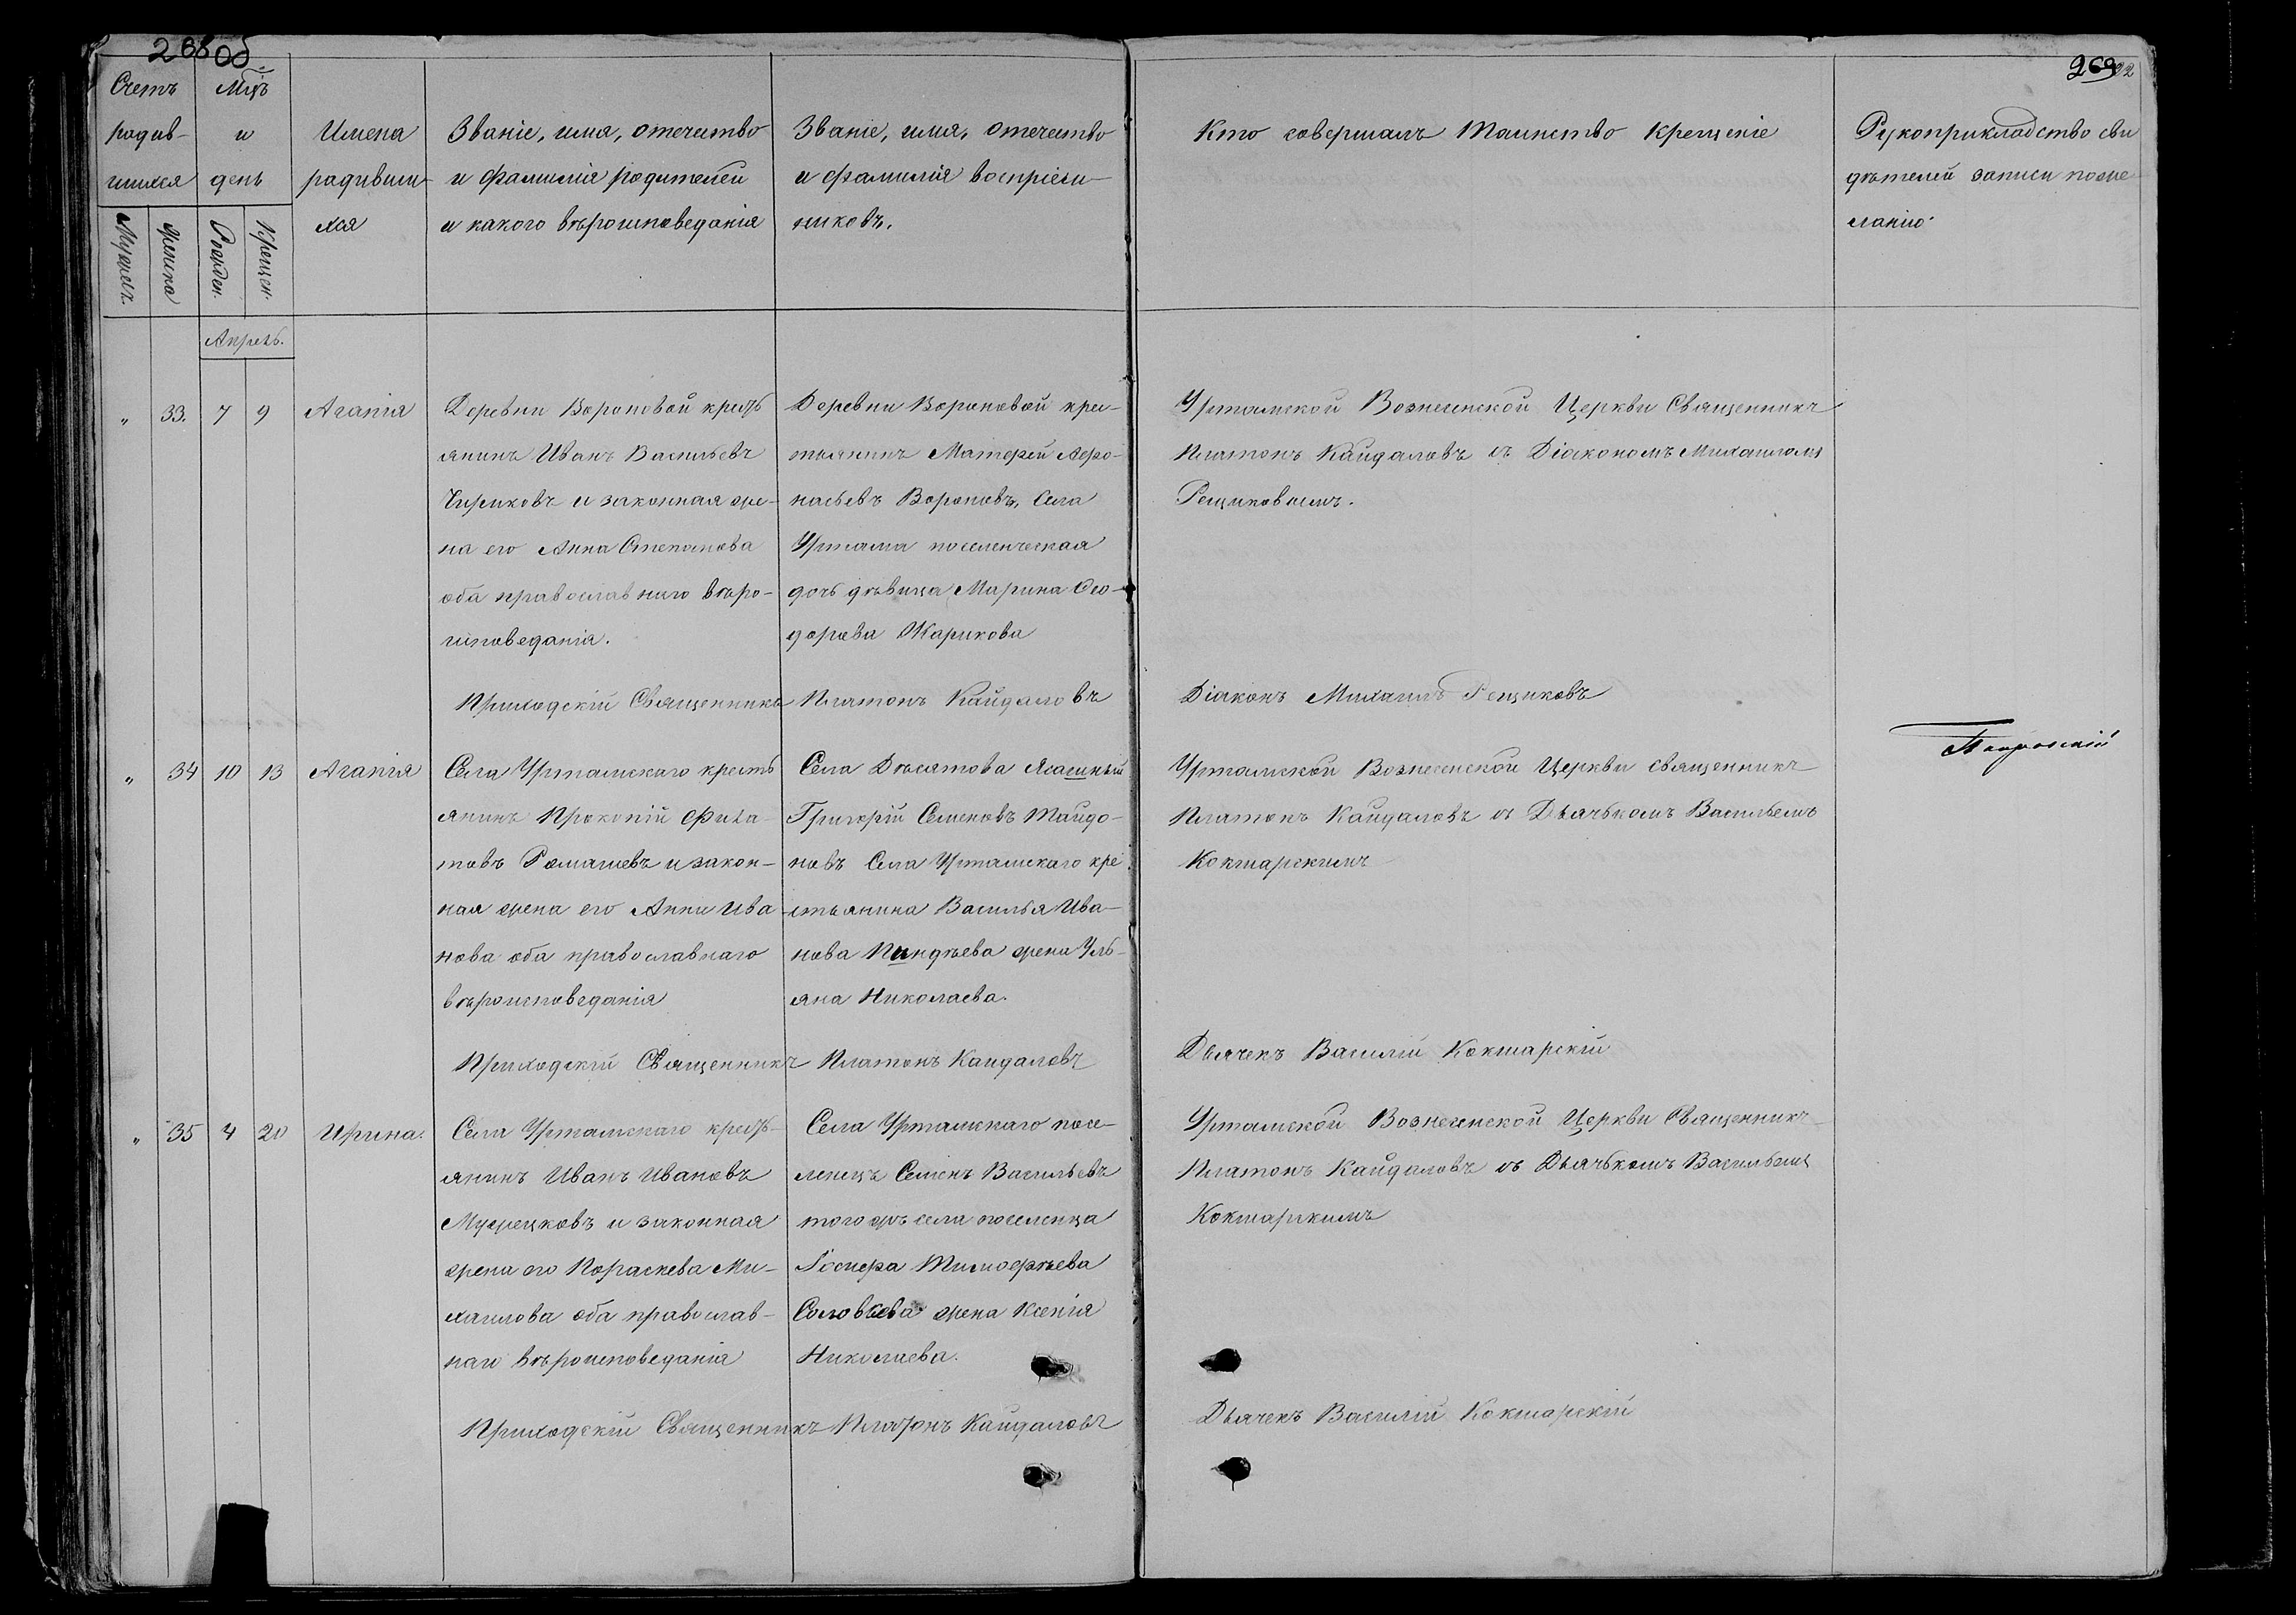 268об
269
Счетъ
родив-
шихся
Мужеска
Женска
Мцъ
и
день
Рожден.
Крещен.
Имена
родивши-
хся
Званіе, имя, отечество
и фамилія родителей
и какого вѣроисповеданія
Званіе, имя, отечество
и фамилія воспріем-
никовъ.
Кто совершалъ таинство крещеніе
Рукоприкладство сви
дѣтелей записи по же
ланію
Апрель.
" 33. 7 9 Агапія
Деревни Вороновой крест
янинъ Иванъ Васильевъ
Чириковъ и законная же-
на его Анна Степанова
оба православнаго вѣро-
исповеданія.
Деревни Вороновой кре-
стьянинъ Матфей Афо-
насьевъ Вороновъ, Села
Уртама поселенческая
дочь дѣвица Марина Фео-
дорова Жарикова
Уртамской Вознесенской Церкви Священникъ
Платонъ Кайдаловъ съ Діакономъ Михаиломъ
Рещиковымъ.
Приходскій Священникъ Платонъ Кайдаловъ
Діаконъ Михаилъ Рещиковъ
" 34 10 13 Агапія
Села Уртамскаго кресть
янинъ Прокопій Фила-
товъ Ромашевъ и закон-
ная жена его Анна Ива
нова оба православнаго
вѣроисповеданія
Села Десятова Ясашный
Григорій Семеновъ Тайдо-
новъ Села Уртамскаго кре
стьянина Василья Ива-
нова Пиндѣева жена Уль-
яна Николаева.
Уртамской Вознесенской Церкви священникъ
Платонъ Кайдаловъ съ Дьячькомъ Васильемъ
Кокшарскимъ
Приходскій Священникъ Платонъ Кайдаловъ
Дьячекъ Василій Кокшарскій
" 35 4 20 Ирина.
Села Уртамскаго крест-
янинъ Иванъ Ивановъ
Мужецковъ и законная
жена его Параскева Ми-
хаилова оба православ-
наго вѣроисповеданія
Села Уртамскаго посе-
ленецъ Семенъ Васильевъ
того жъ села поселенца
Іосифа Тимофѣева
Соловьева жена Ксенія
Николаева.
Уртамской Вознесенской Церкви Священникъ
Платонъ Кайдаловъ съ Дьячькомъ Васильемъ
Кокшарскимъ
Приходскій Священникъ Платонъ Кайдаловъ
Дьячекъ Василій Кокшарскій